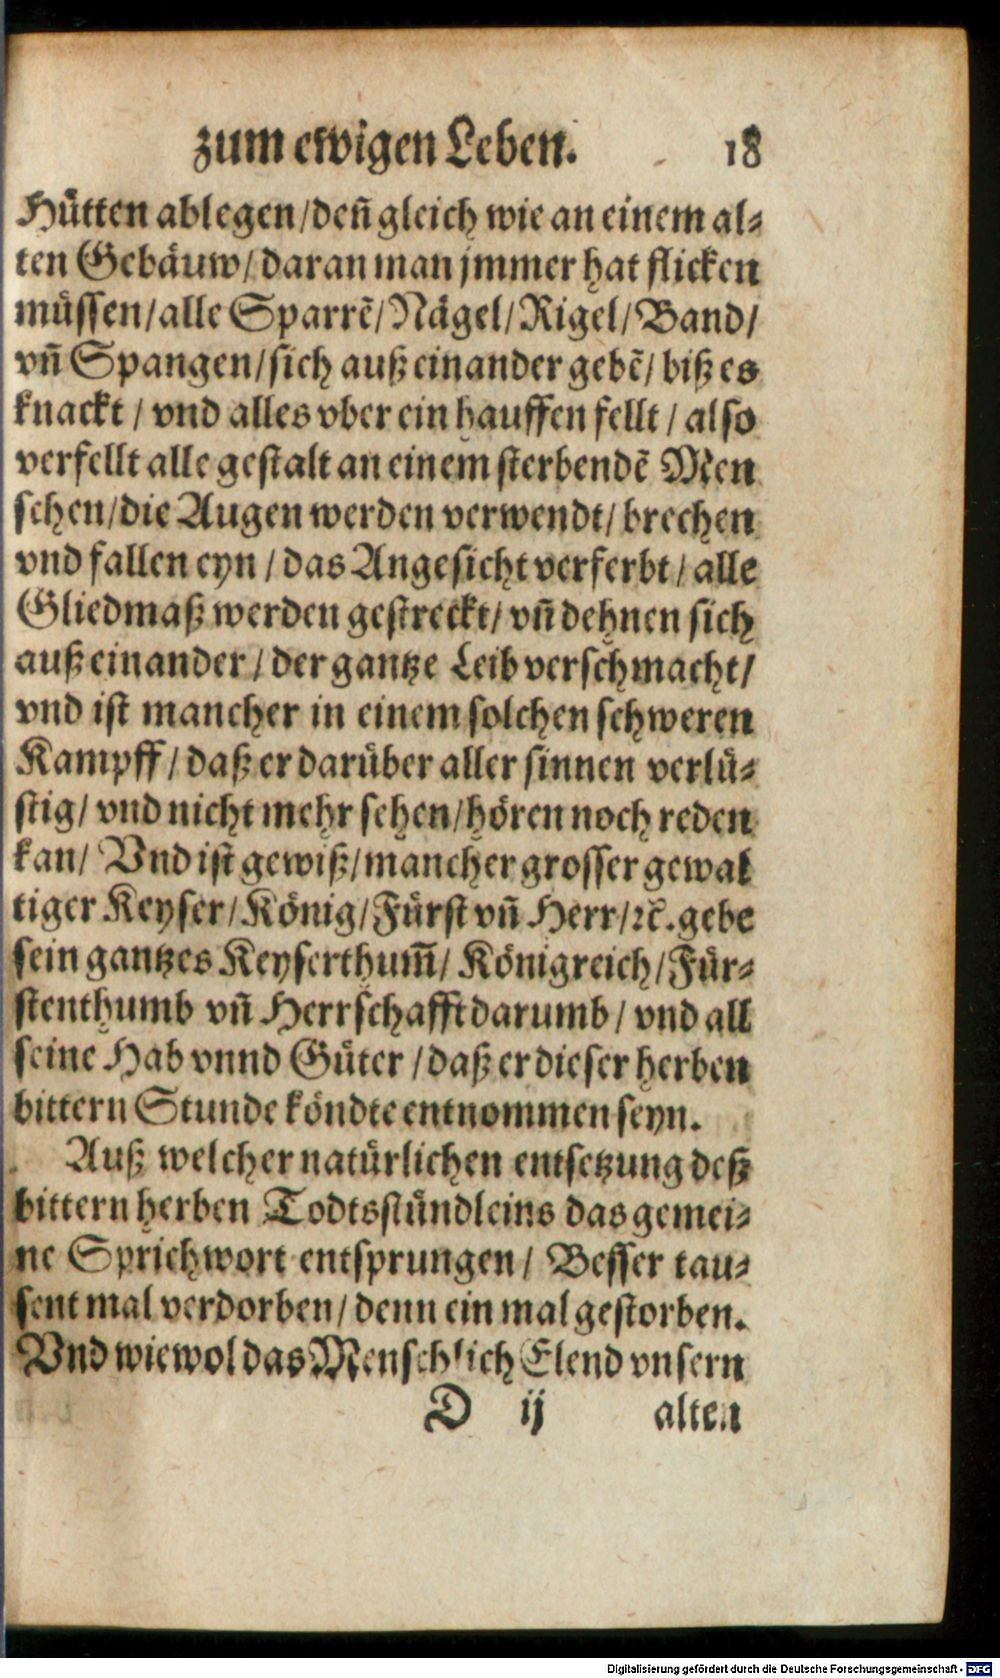 zum ewigen Leben. 18
Hütten ablegen/deñ gleich wie an einem al⸗
ten Gebäuw/ daran man jmmer hat flicken
müssen/alle Sparrẽ/Nägel/Rigel/Band/
vñ Spangen/sich auß einander gebẽ/ biß es
knackt / vnd alles vber ein hauffen fellt / also
verfellt alle gestalt an einem sterbendẽ Men
schen/die Augen werden verwendt/ brechen
vnd fallen eyn / das Angesicht verferbt / alle
Gliedmaß werden gestreckt/ vñ dehnen sich
auß einander / der gantze Leib verschmacht/
vnd ist mancher in einem solchen schweren
Kampff / daß er darüber aller sinnen verlü⸗
stig/ vnd nicht mehr sehen/hören noch reden
kan/ Vnd ist gewiß/mancher grosser gewal
tiger Keyser/König/Fürst vñ Herr/ꝛc̃. gebe
sein gantzes Keyserthum̃/ Königreich/Für⸗
stenthumb vñ Herrschafft darumb / vnd all
seine Hab vnnd Güter / daß er dieser herben
bittern Stunde köndte entnommen seyn.
Auß welcher natürlichen entsetzung deß
bittern herben Todtsstündleins das gemei⸗
ne Sprichwort entsprungen/ Besser tau⸗
sent mal verdorben/ denn ein mal gestorben.
Vnd wiewol das Menschlich Elend vnsern
D ij alten
Digitalisierung gefördert durch die Deutsche Forschungsgemeinschaft - DFG